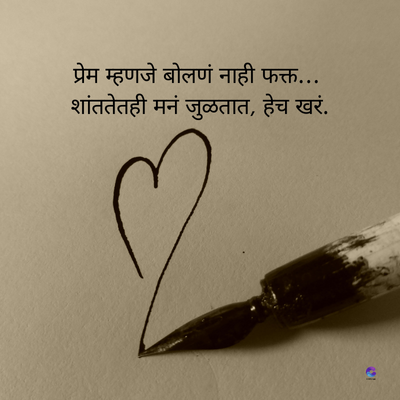 प्रेम म्हणजे बोलणं नाही फक्त...
शांततेतही मनं जुळतात, हेच खरं.